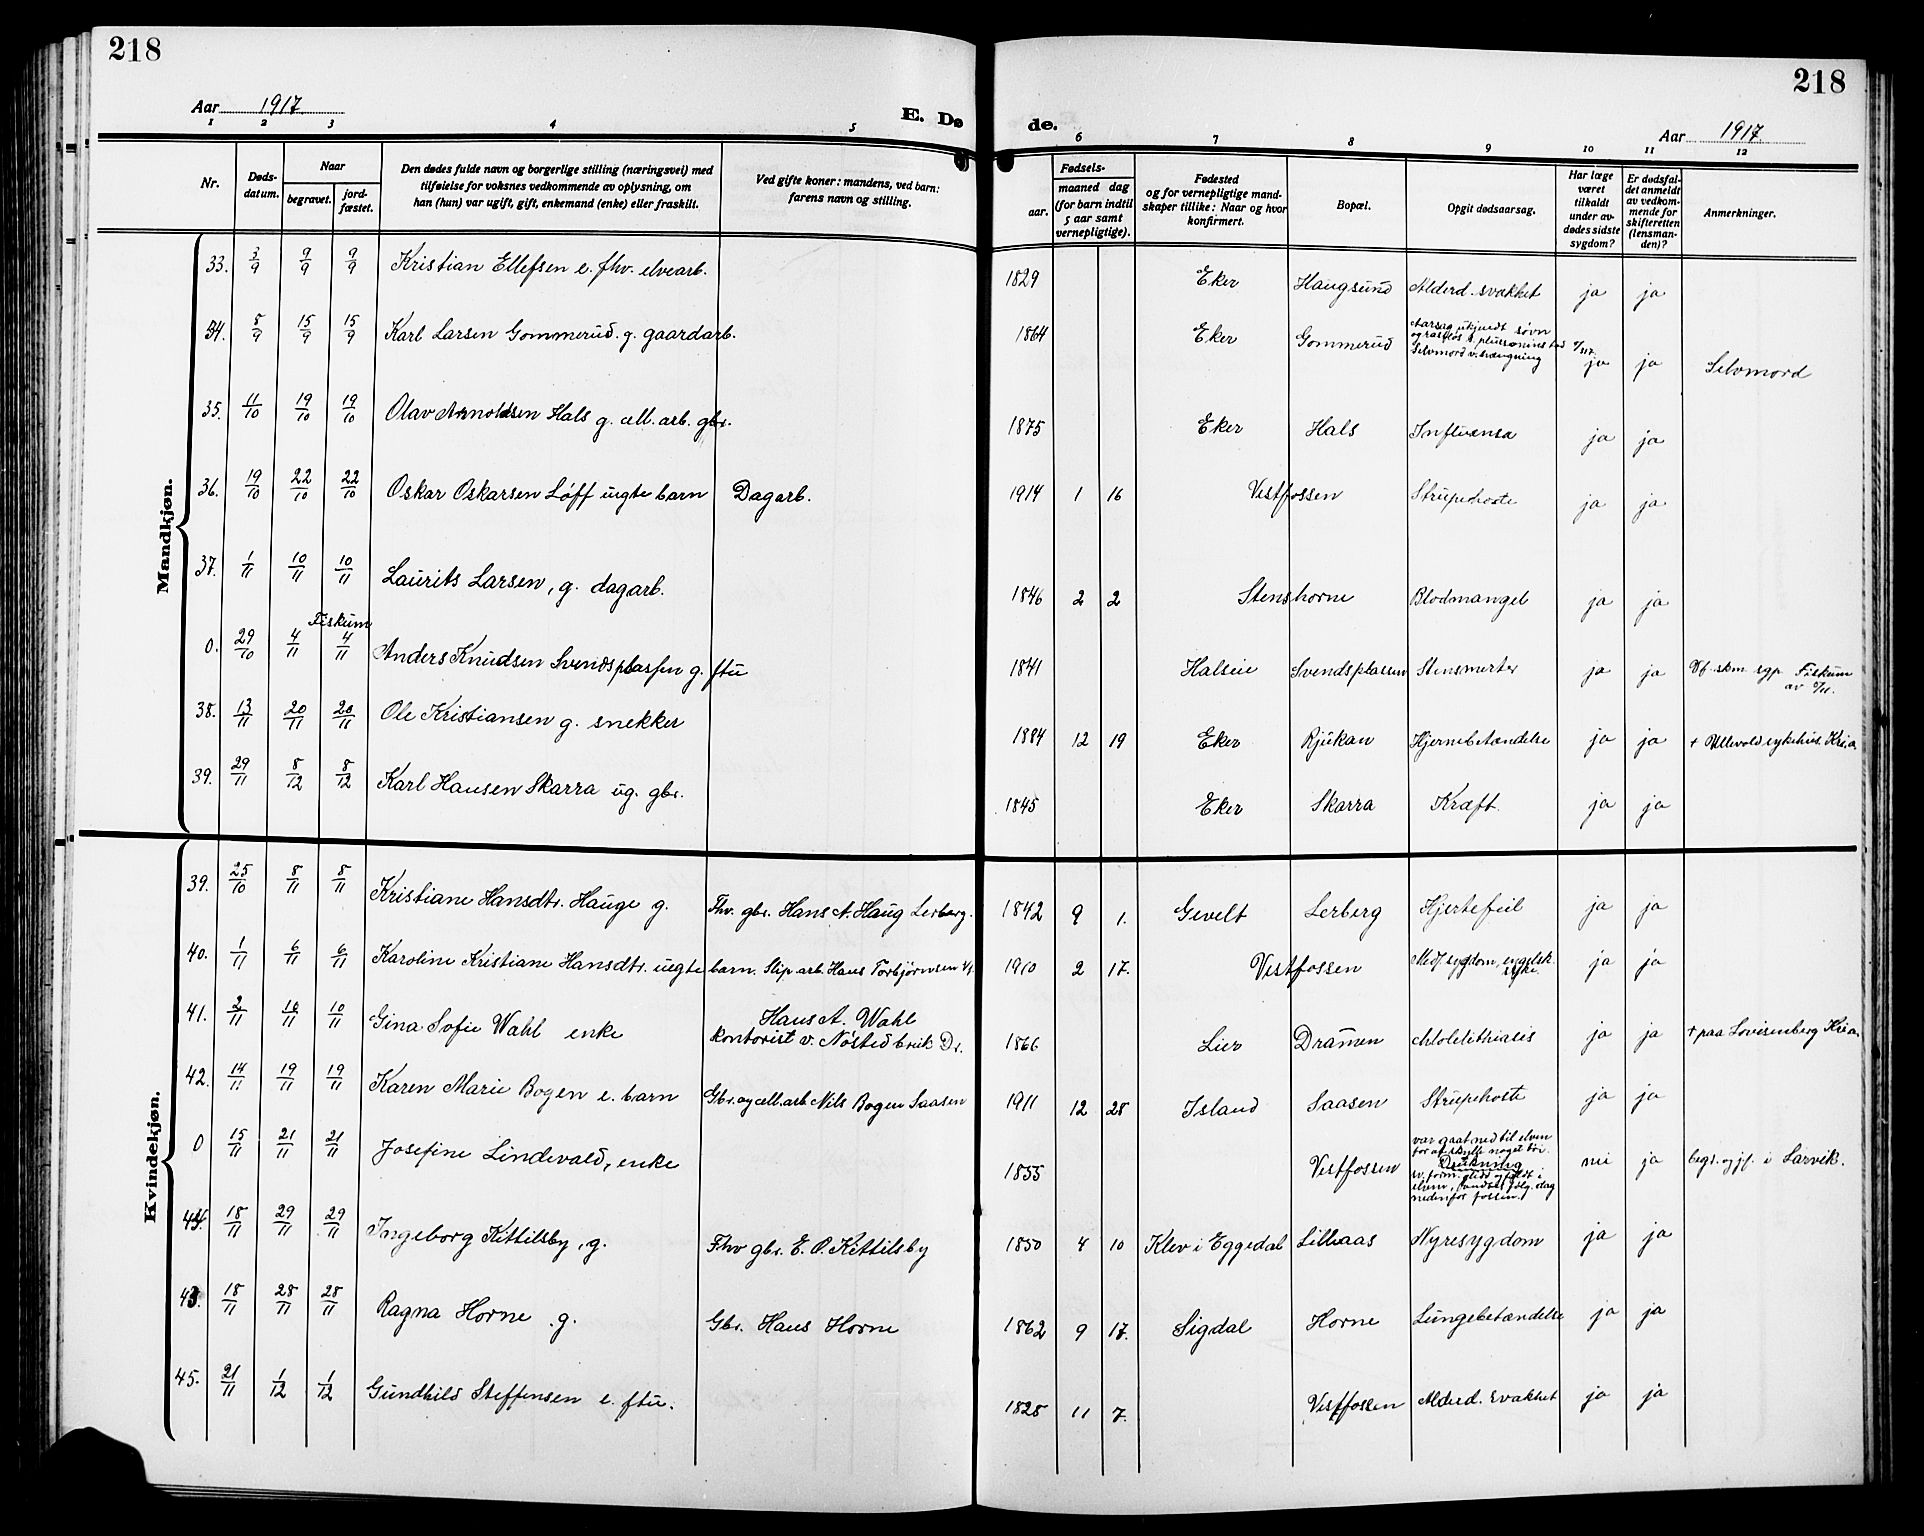 218
218
Aar 1917
E. Dø
de.
Aar 1917.
1 2 3 4 5
6 7 8 9 10 11 12
Nr.
Døds-
datum.
Naar
begravet.
jord-
fæstet.
Den dødes fulde navn og borgerlige stilling (næringsvei) med
tilføielse for voksnes vedkommende av oplysning, om
han (hun) var ugift, gift, enkemand (enke) eller fraskilt.
Ved gifte koner: mandens, ved barn:
farens navn og stilling.
Fødsels-
aar.
maaned dag
(for barn indtil
5 aar samt
vernepligtige).
Fødested
og for vernepligtige mand-
skaper tillike: Naar og hvor
konfirmert.
Bopæl.
Opgit dødsaarsag.
Har læge
været
tilkaldt
under av-
dødes sidste
sygdom?
Er dødsfal-
det anmeldt
av vedkom-
mende for
skifteretten
(lensman-
den)?
Anmerkninger.
Mandkjøn.
33. 3/9 9/9 9/9 Kristian Ellefsen e. fhv. elvearb. 1829 Eker Haugsund Alderd. svakhet ja ja
34. 8/9 15/9 15/9 Karl Larsen Gommerud g. gaardarb. 1864 Eker Gommerud Aarsag ukjendt søvn
Selvmord v. hængning ja ja Selvmord
35. 11/10 19/10 19/10 Olav Arnoldsen Hals g. cell. arb. gbr. 1875 Eker Hals Influensa ja ja
36. 19/10 22/10 22/10 Oskar Oskarsen Løff uegte barn Dagarb. 1914 1 16 Vestfossen Strupehoste ja ja
37. 1/11 10/11 10/11 Laurits Larsen, g. dagarb. 1846 2 2 Stenshorne Blodmangel ja ja
Fiskum
0. 29/10 4/11 4/11 Anders Knudsen Svendsplassen g. ftu 1841 Halseie Svendsplassen Stensmerter ja ja Vf. skm. sgp. Fiskum
38. 13/11 20/11 20/11 Ole Kristiansen g. snekker 1884 12 19 Eker Rjukan Hjernebetændelse ja ja + Ullevold sykehus. Kr.a.
39. 29/11 8/12 8/12 Karl Hansen Skarra ug. gbr. 1845 Eker Skarra Kræft. ja ja
Kvindekjøn.
39. 25/10 8/11 8/11 Kristiane Hansdtr. Hauge g. Fhv. gbr. Hans A. Haug Lerberg. 1842 9 1. Gevelt Lerberg Hjertefeil ja ja
40. 1/11 6/11 6/11 Karoline Kristiane Hansdtr. uegte barn. Slip. arb. Hans Torbjørnsen Vf. 1910 2 17. Vestfossen Medf. sygdom, engelsk
syke. ja ja
41. 2/11 10/11 10/11 Gina Sofie Wahl enke Hans A. Wahl
kontorist v. Nøsted bruk Dr. 1866 Lier Drammen Cholelithiasis ja ja + paa Lovisenberg Kr.a.
42. 14/11 19/11 19/11 Karen Marie Bogen e. barn Gbr. og cell. arb. Nils Bogen Saasen 1911 12 28 Island Saasen Strupehoste ja ja
0 15/11 21/11 21/11 Josefine Lindevald, enke 1855 Vestfossen var gaat ned til elven
for at skylle noget tøi.
Drukning
elven, fundet følg. dag
nedenfor fossen. nei ja begr. og jf. i Larvik.
44. 18/11 29/11 29/11 Ingeborg Kittilsby, g. Fhv gbr. E. O. Kittilsby 1850 4 10 Klev i Eggedal Lilleaas Nyresygdom ja ja
43. 18/11 28/11 28/11 Ragna Horne . g. Gbr. Hans Horne 1862 9 17. Sigdal Horne Lungebetændelse ja ja
45. 21/11 1/12 1/12 Gundhild Steffensen e. ftu. 1828 11 7. Vestfossen Alderd. svakhet ja ja